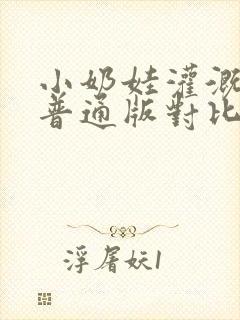 小奶娃灌溉
普通版對比
浮屠妖1